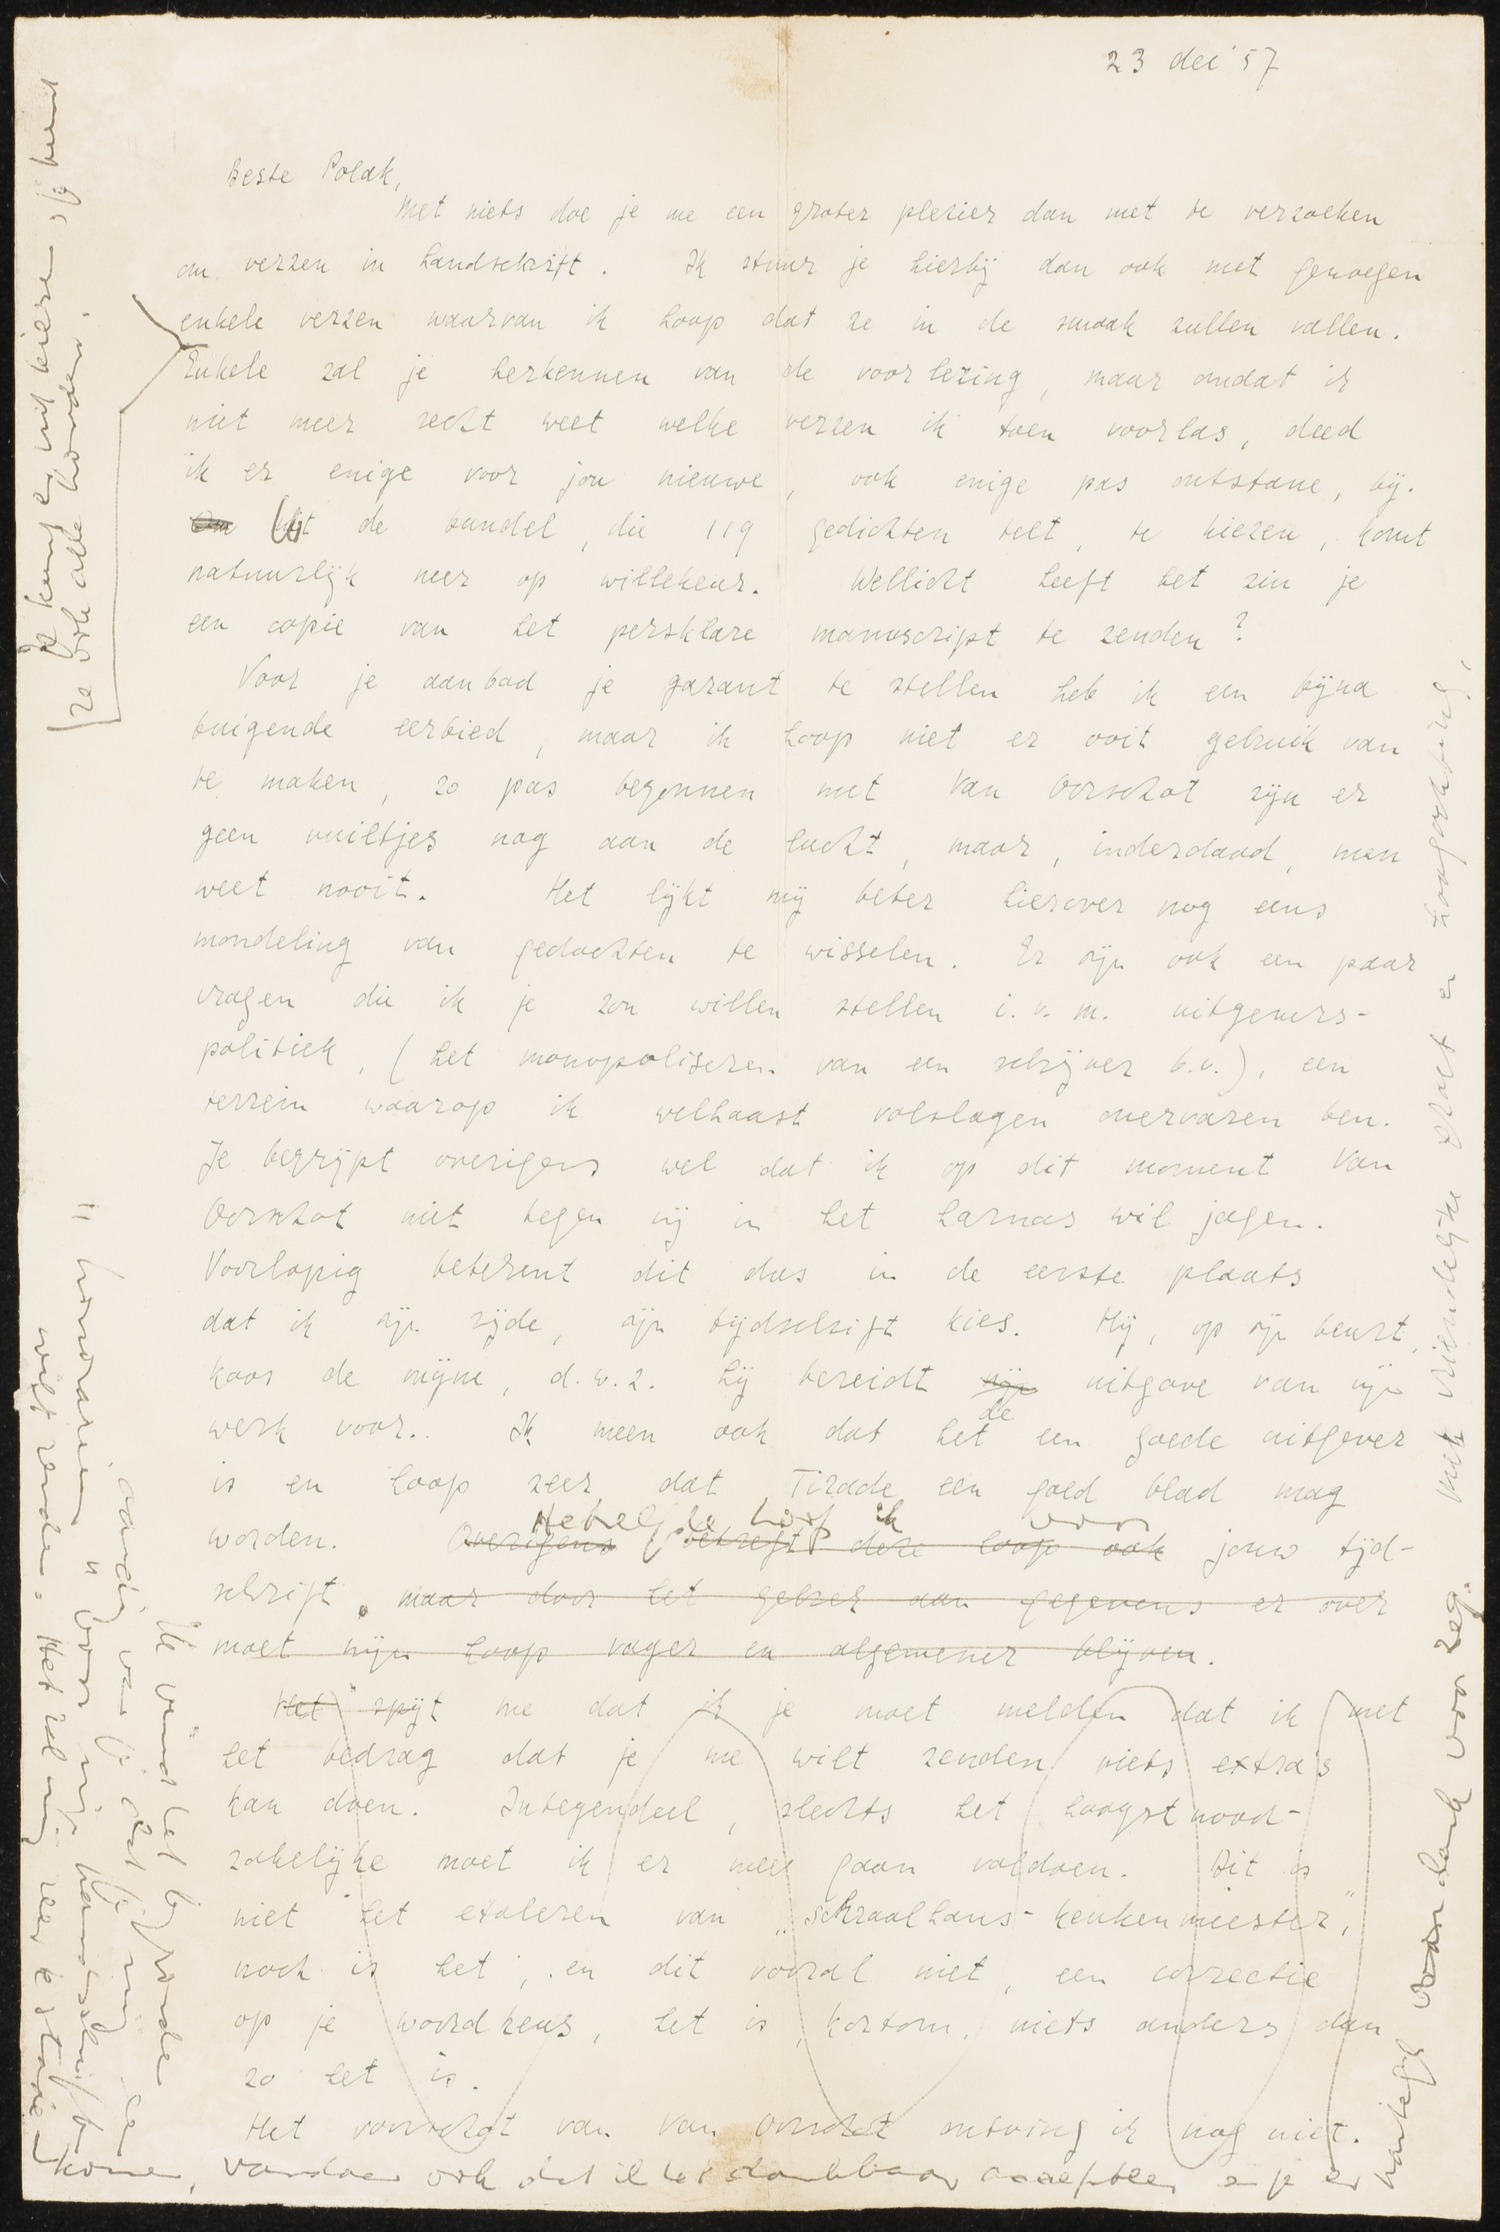 23 dec '57
Beste Polak,
Met niets doe je me een groter plezier dan met te verzoeken
om verzen in handschrift. Ik stuur je hierbij dan ook met genoegen
enkele verzen waarvan ik hoop dat ze in de smaak zullen vallen.
Enkele zal je herkennen van de voorlezing, maar omdat ik
niet meer recht weet welke verzen ik toen voorlas, deed
ik er enige voor jou nieuwe, ook enige pas ontstane, bij.
Om Uit de bundel, die 119 gedichten telt, te kiezen, komt
natuurlijk neer op willekeur. Wellicht heeft het zin je
een copie van het persklare manuscript te zenden?
Voor je aanbod je garant te stellen heb ik een bijna
buigende eerbied, maar ik hoop niet er ooit gebruik van
te maken, zo pas begonnen met Van Oorschot zijn er
geen vuiltjes nog aan de lucht, maar, inderdaad, men
weet nooit. Het lijkt mij beter hierover nog eens
mondeling van gedachten te wisselen. Er zijn ook een paar
vragen die ik je zou willen stellen i.v.m. uitgevers-
politiek, (het monopoliseren van een schrijver b.v.), een
terrein waarop ik welhaast volslagen onervaren ben.
Je begrijpt overigens wel dat ik op dit moment Van
Oorschot niet tegen mij in het harnas wil jagen.
Voorlopig betekent dit dus in de eerste plaats
dat ik zijn zijde, zijn tijdschrift kies. Hij, op zijn beurt,
koos de mijne, d.w.z. hij bereidt zijn de uitgave van mijn
werk voor. Ik meen ook dat het een goede uitgever
is en hoop zeer dat Tirade een goed blad mag
worden. Overigens betreft deze hoop ook Hetzelfde hoop ik voor jouw tijd-
schrift. maar door het gebrek aan gegevens er over
moet mijn hoop vager en algemener blijven.
Het spijt me dat ik je moet melden dat ik met
het bedrag dat je me wilt zenden niets extra's
kan doen. Integendeel, slechts het hoogst nood-
zakelijke moet ik er mee gaan voldoen. Dit is
niet het etaleren van "schraalhans-keukenmeester",
noch is het, en dit vooral niet, een correctie
op je woordkeus, het is, kortom, niets anders dan
zo het is.
Het voorschot van Van Oorschot ontving ik nog niet.
Je kunt er uit kiezen, jij kunt
ze ook alle houden.
Ik vind het bijzonder
aardig van je dat je mij een
"honorarium" voor mijn handschriften
wilt zenden. Het zal mij zeer te stade
komen, vandaar ook dat ik het dankbaar accepteer en je er
hartelijk dank voor zeg.
Met vriendelijke groet en hoogachting,